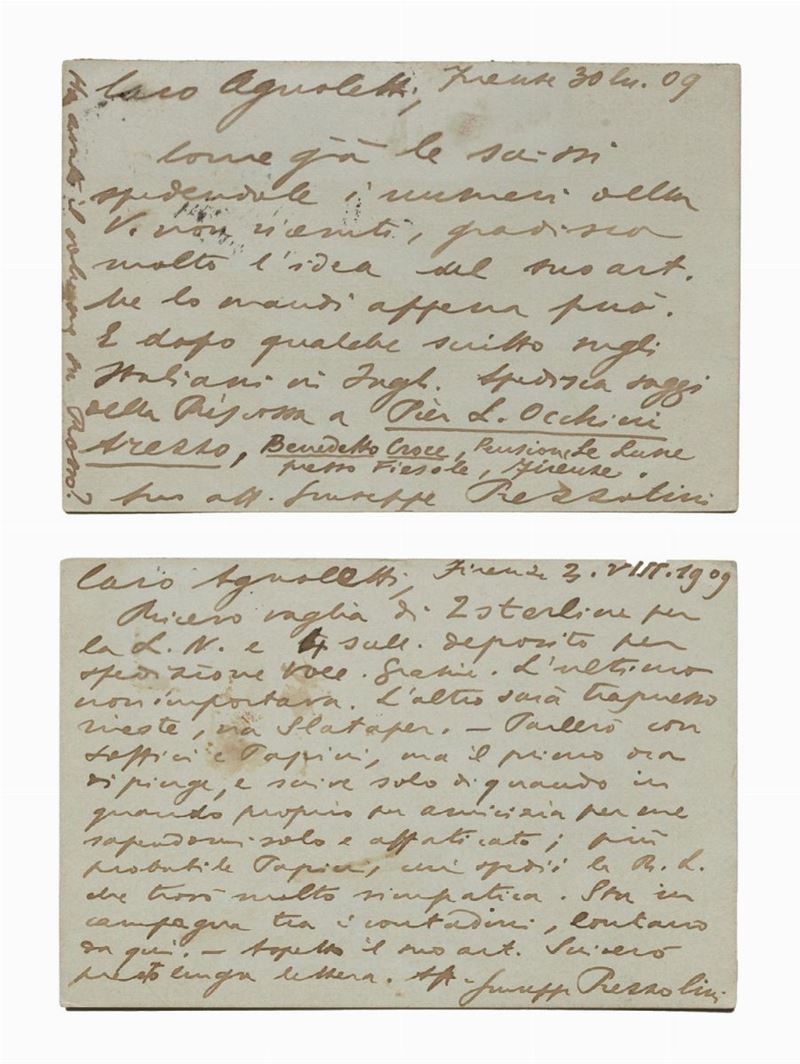 Caro Agnoletti, Firenze 30 lu. 09
Come già le scissi
spedendole i numeri della
V. non ricevuti, gradisco
molto l'idea del suo art.
Me lo mandi appena può.
E dopo qualche scritto sugli
Italiani in Ingl. Spedisca saggi
della Riscossa a Pier L. Occhini
Arezzo, Benedetto Croce, Pensione Le Lune
presso Fiesole, Firenze.
Suo aff. Giuseppe Prezzolini
Ha avuto il volume su Rosso?
Caro Agnoletti, Firenze 2. VIII. 1909
Ricevo vaglia di 2 sterline per
la L. N. e 4 scell. deposito per
spedizione Voce. Grazie. L'ultimo
non importava. L'altro sarà trasmesso
Trieste, via Slataper. — Parlerò con
Soffici e Papini, ma il primo ora
dipinge, e scrive solo di quando in
quando proprio per amicizia per me
sapendomi solo e affaticato; più
probabile Papini, cui spedii la R. L.
che trovò molto simpatica. Sta in
campagna tra i contadini, lontano
da qui. — Aspetto il suo art. Scriverò
presto lunga lettera. Aff. Giuseppe Prezzolini